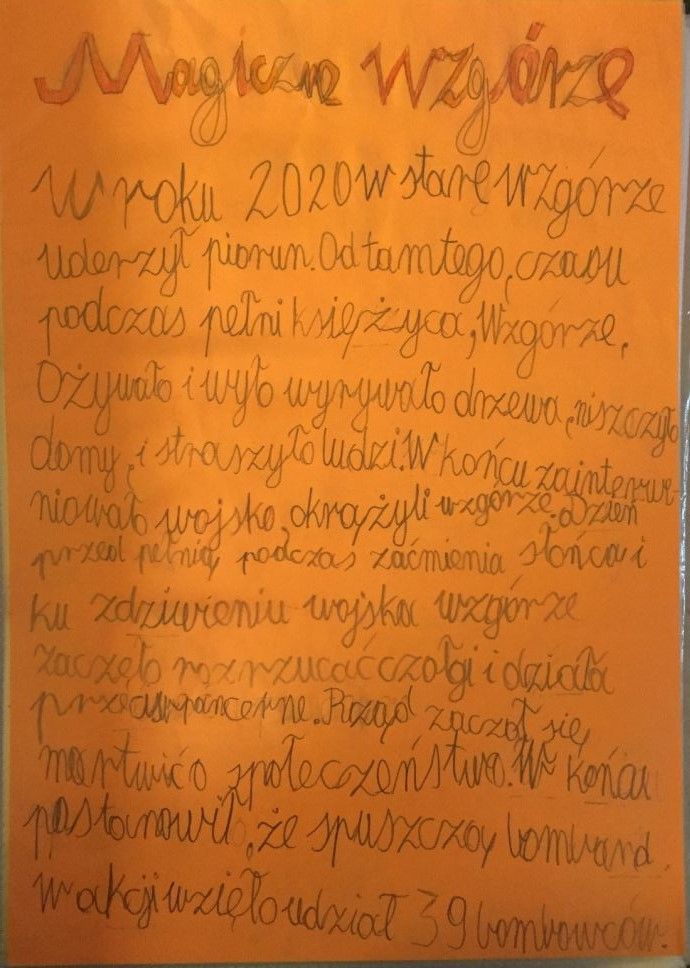 Magiczne Wzgórze
W roku 2020 w starę Wzgórze
uderzył piorun. Od tamtego, czasu
podczas pełni księżyca, Wzgórze,
Ożywało i wyło wyrywało drzewa, niszczyło
domy, i straszyło ludzi. W końcu zainterwe
niowało wojsko, okrążyli wzgórze. Dzień
przed pełnią podczas zaćmienia słońca i
ku zdziwieniu wojska wzgórze
zaczęło rozrzucać czołgi i działa
przeciwpancerne. Rząd zaczął się
martwić o społeczeństwo. W końcu
postanowił, że spuszczą
W akcji wzięło udział 39 bombowców.